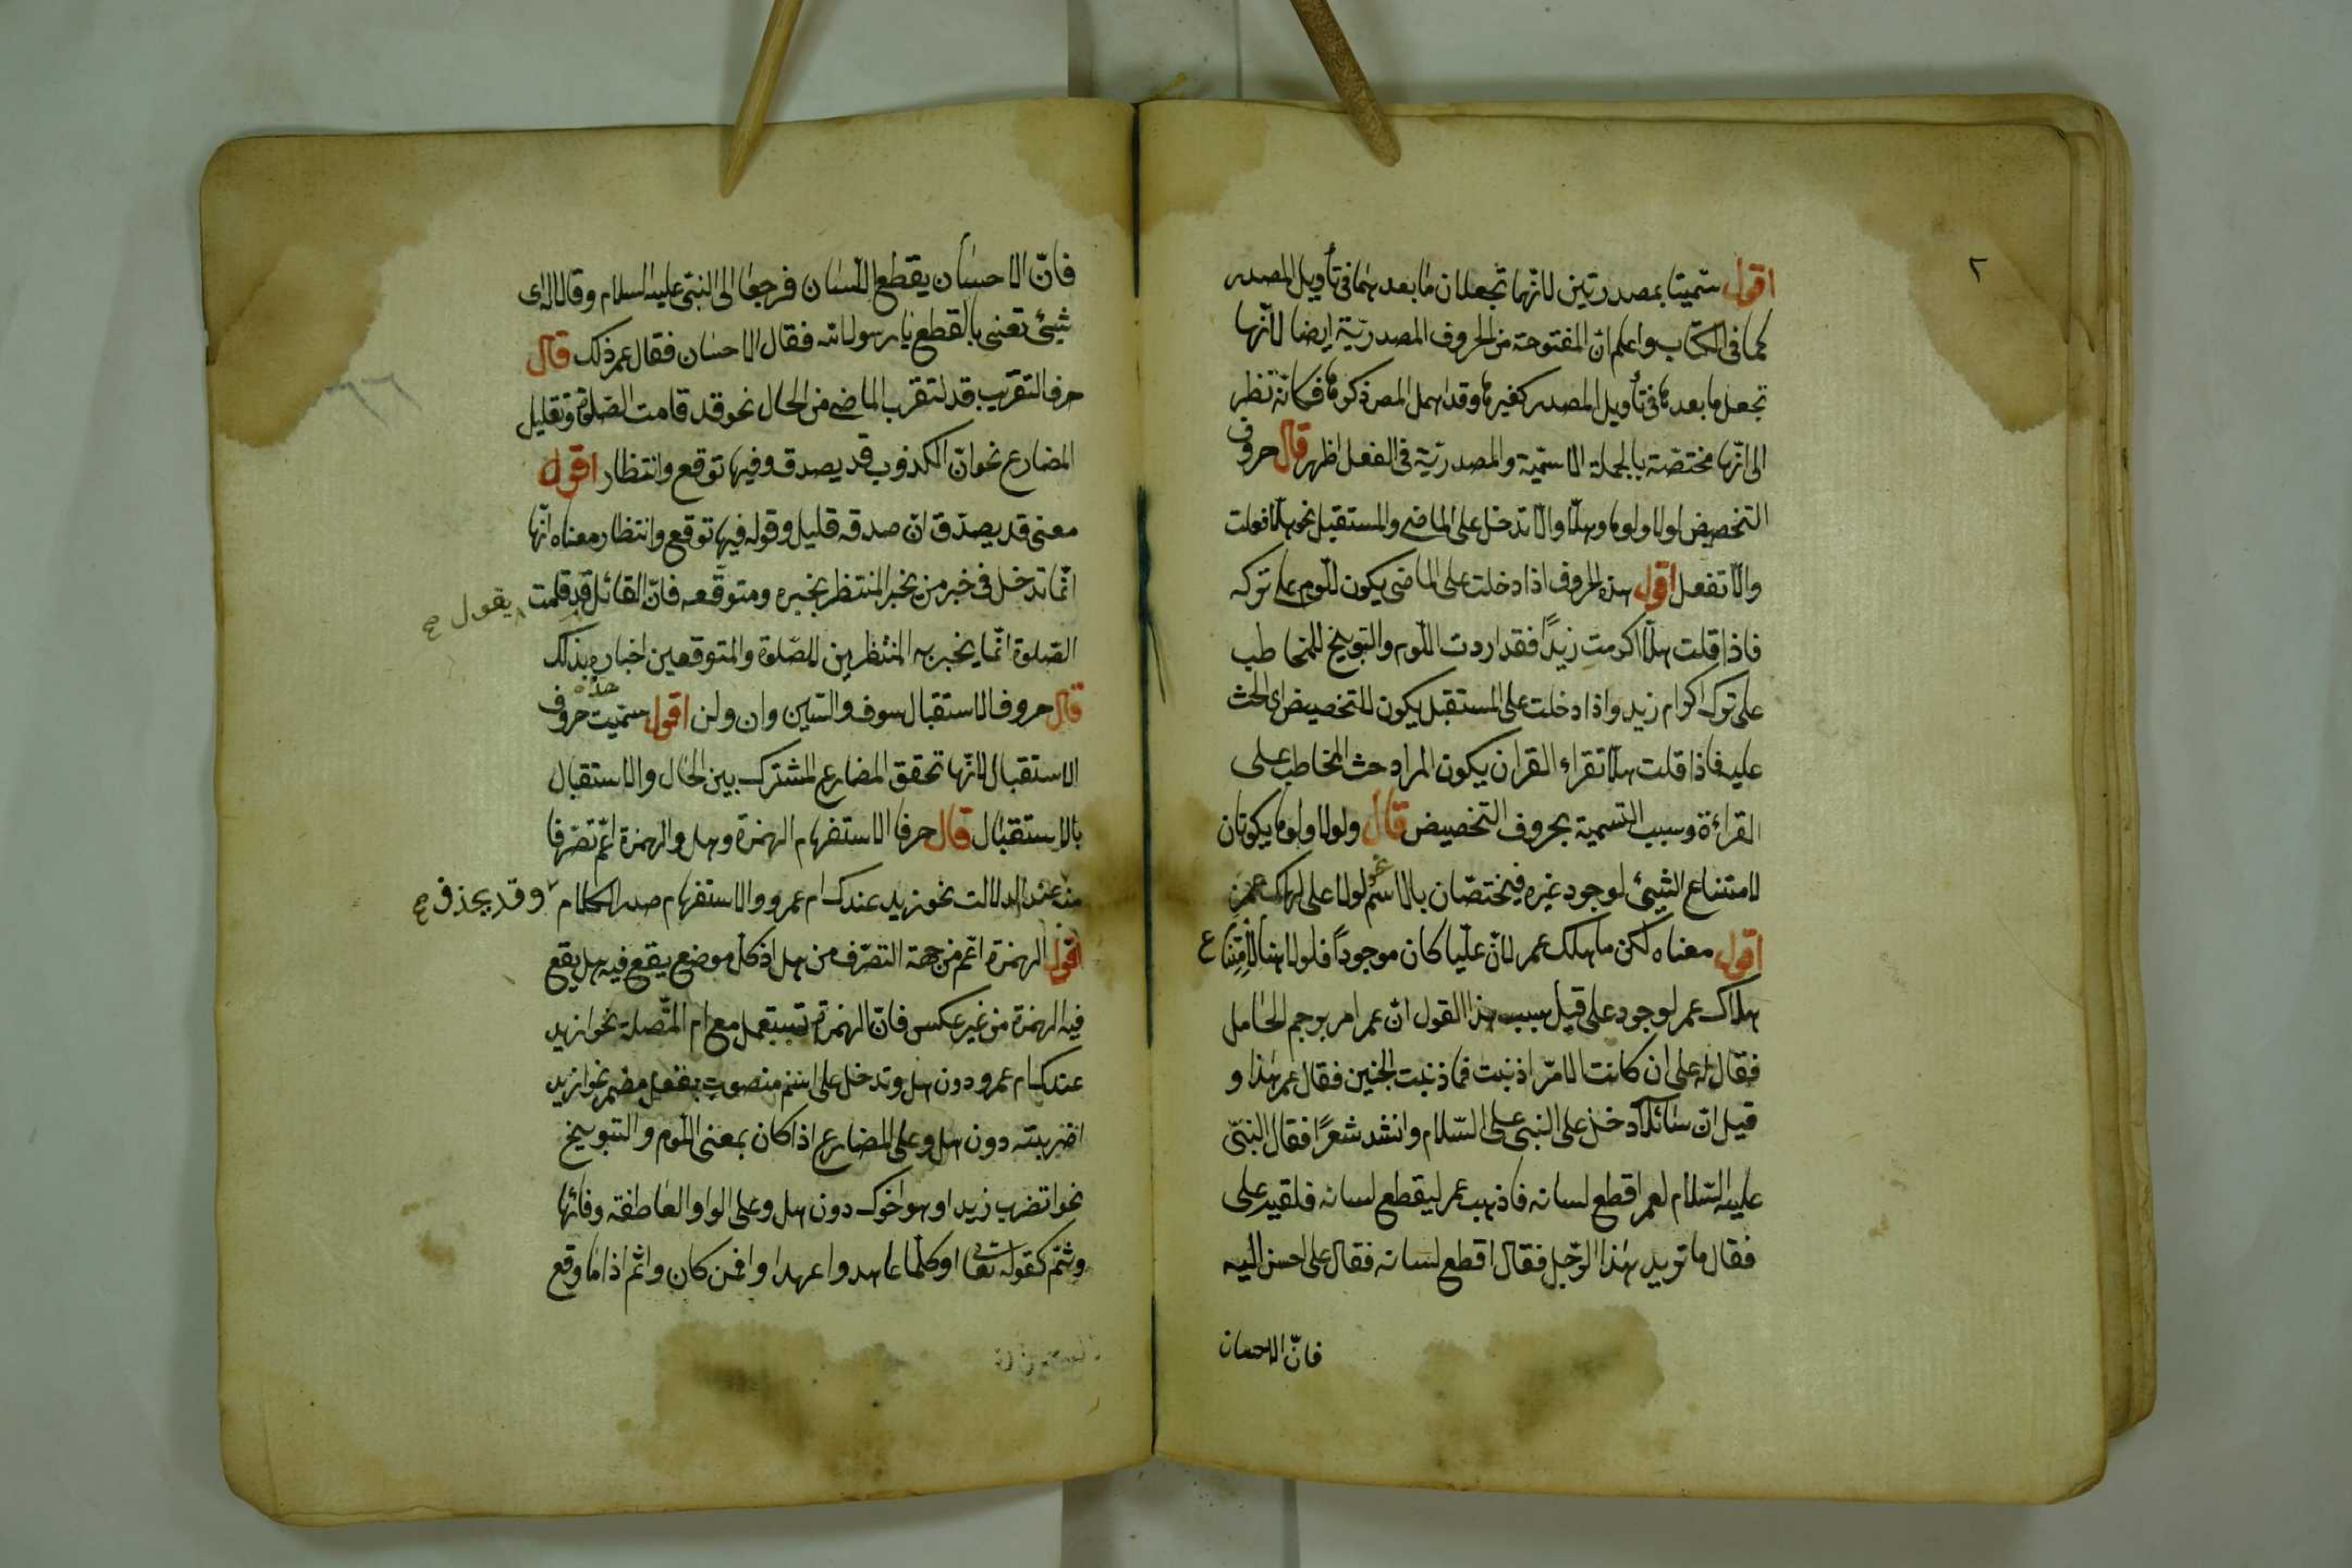 ٢
اقول سمّيتا بمصدرتين لانّهما تجعلان ما بعدهما فى تأويل المصدر
كما فى الكتاب واعلم ان المفتوحة من الحروف المصدريّة ايضا لانّها
تجعل ما بعدها فى تأويل المصدر كغيرها وقد اهمل المص ذكرها فكانّه نظر
الى انّها مختصّة بالجملة الاسميّة والمصدريّة فى الفعل اظهر قال حروف
التخصيص لولا ولوما وهلّا والّا تدخل على الماضى والمستقبل نحو هلّا فعلت
والّا تفعل اقول هذه الحروف اذا دخلت على الماضى يكون للّوم على تركه
فاذا قلت هلّا اكرمت زيدًا فقد اردت اللّوم والتوبيخ للمخاطب
على ترك اكرام زيد واذا دخلت على المستقبل يكون للتخصيص اى الحث
عليه فاذا قلت هلّا تقراء القران يكون المراد حث المخاطب على
القراءة وسبب التسمية بحروف التخصيص قال ولولا ولوما يكونان
لامتناع الشيئ لوجود غيره فيختصّان بالاسم نحو لولا على لهلك عمر
اقول معناه لكن ما هلك عمر لانّ عليّا كان موجودًا فلولا هنا لامتناع
هلاك عمر لوجود على قيل سبب هذا القول انّ عمر امر برجم الحامل
فقال له على ان كانت الامّ اذنبت فما ذنبت الجنين فقال عمر هذا و
قيل انّ سائلًا دخل على النبى على السّلام وانشد شعرًا فقال النبّى
عليه السّلام لعمر اقطع لسانه فاذهب عمر ليقطع لسانه فلقيه على
فقال ما تريد هذا الرّجل فقال اقطع لسانه فقال على احسن اليه
فانّ الاحسان
فانّ الاحسان يقطع اللّسان فرجعا الى النبّى عليه السلام وقالا له اى
شيئ تعنى بالقطع يا رسول الله فقال الاحسان فقال عمر ذلك قال
حرف التقريب قد لتقرب الماضى من الحال نحو قد قامت الصّلوة وتقليل
المضارع نحو انّ الكذوب قد يصدق وفيها توقع وانتظار اقول
معنى قد يصدّق انّ صدقه قليل وقوله فيها توقع وانتظار معناه انّها
انّما تدخل فى خبر من يخبر المنتظر بخبره ومتوقّعه فانّ القائل قد قلمت
يقول صح
الصّلوة انّما يخبر به المنتظرين للصّلوة والمتوقعين اخباره بذلك
قال حروف الاستقبال سوف والسّين وان ولن اقول سمّيت هذه حروف
الاستقبال لانّها تحقق المضارع المشترك بين الحال والاستقبال
بالاستقبال قال حرفا الاستفهام الهمزة وهل والهمزة اعّم تصّرفا
منه عند الدلالت نحو زيد عندك ام عمرو والاستفهام صدر الكلام
وقد يحذف صح
اقول الهمزة اعّم من جهة التصّرف من هل اذ كلّ موضع يقع فيه هل يقع
فيه الهمزة من غير عكس فانّ الهمزة تستعمل مع ام المتّصلة نحو ازيد
عندك ام عمرو دون هل وتدخل على اسم منصوب بفعل مضمر نحو ازيد
اضربته دون هل وعلى المضارع اذا كان بمعنى اللّوم والتوبيخ
نحو اتضرب زيد او هو اخوك دون هل وعلى الواو العاطفة وفائها
وثمّ كقوله تعا او كلّما عاهدوا عهدا وافمن كان واثم اذا ما وقع